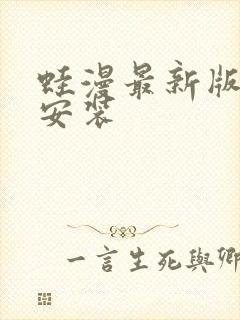 蛙漫最新版
安装
一言生死與卿